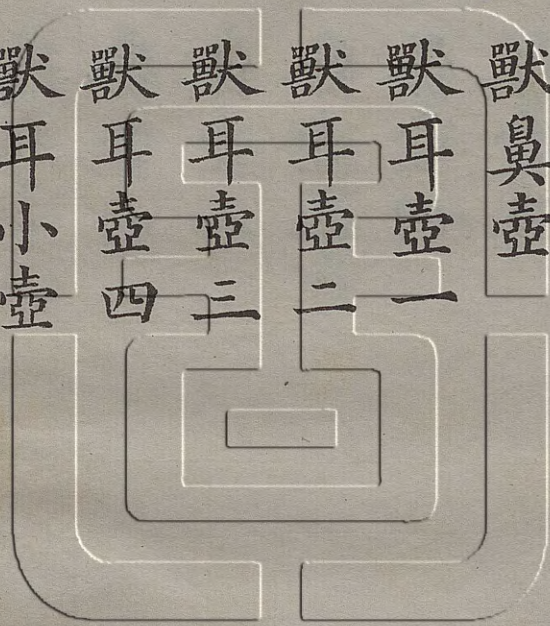 獸鼻壺
獸耳壺一
獸耳壺二
獸耳壺三
獸耳壺四
獸耳小壺